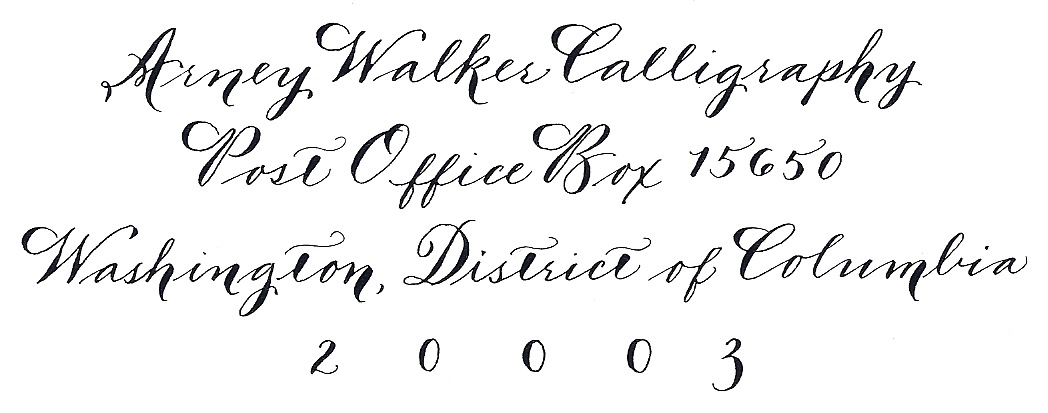 Arney Walker Calligraphy
Post Office Box 15650
Washington, District of Columbia
2 0 0 0 3